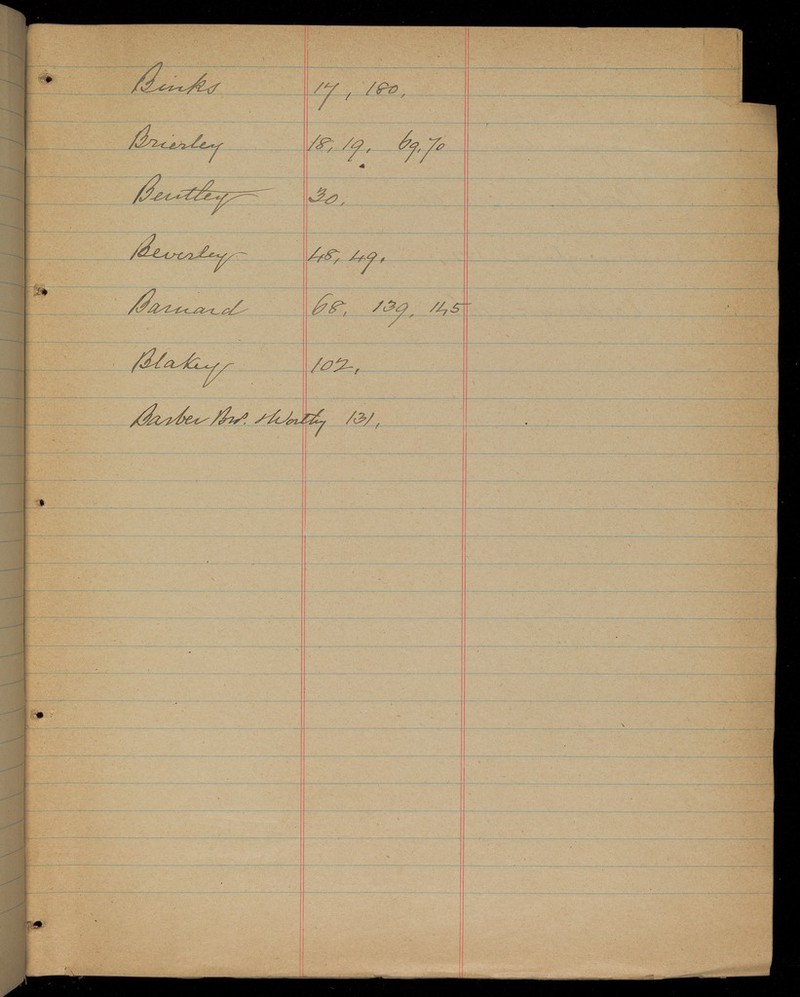 Binks 17, 180.
Brierley 18, 19, 69, 70
Bentley 30.
Beverley 48, 49.
Barnard 68, 139, 145
Blakey 102,
Barber Bros. & Worthy 131,